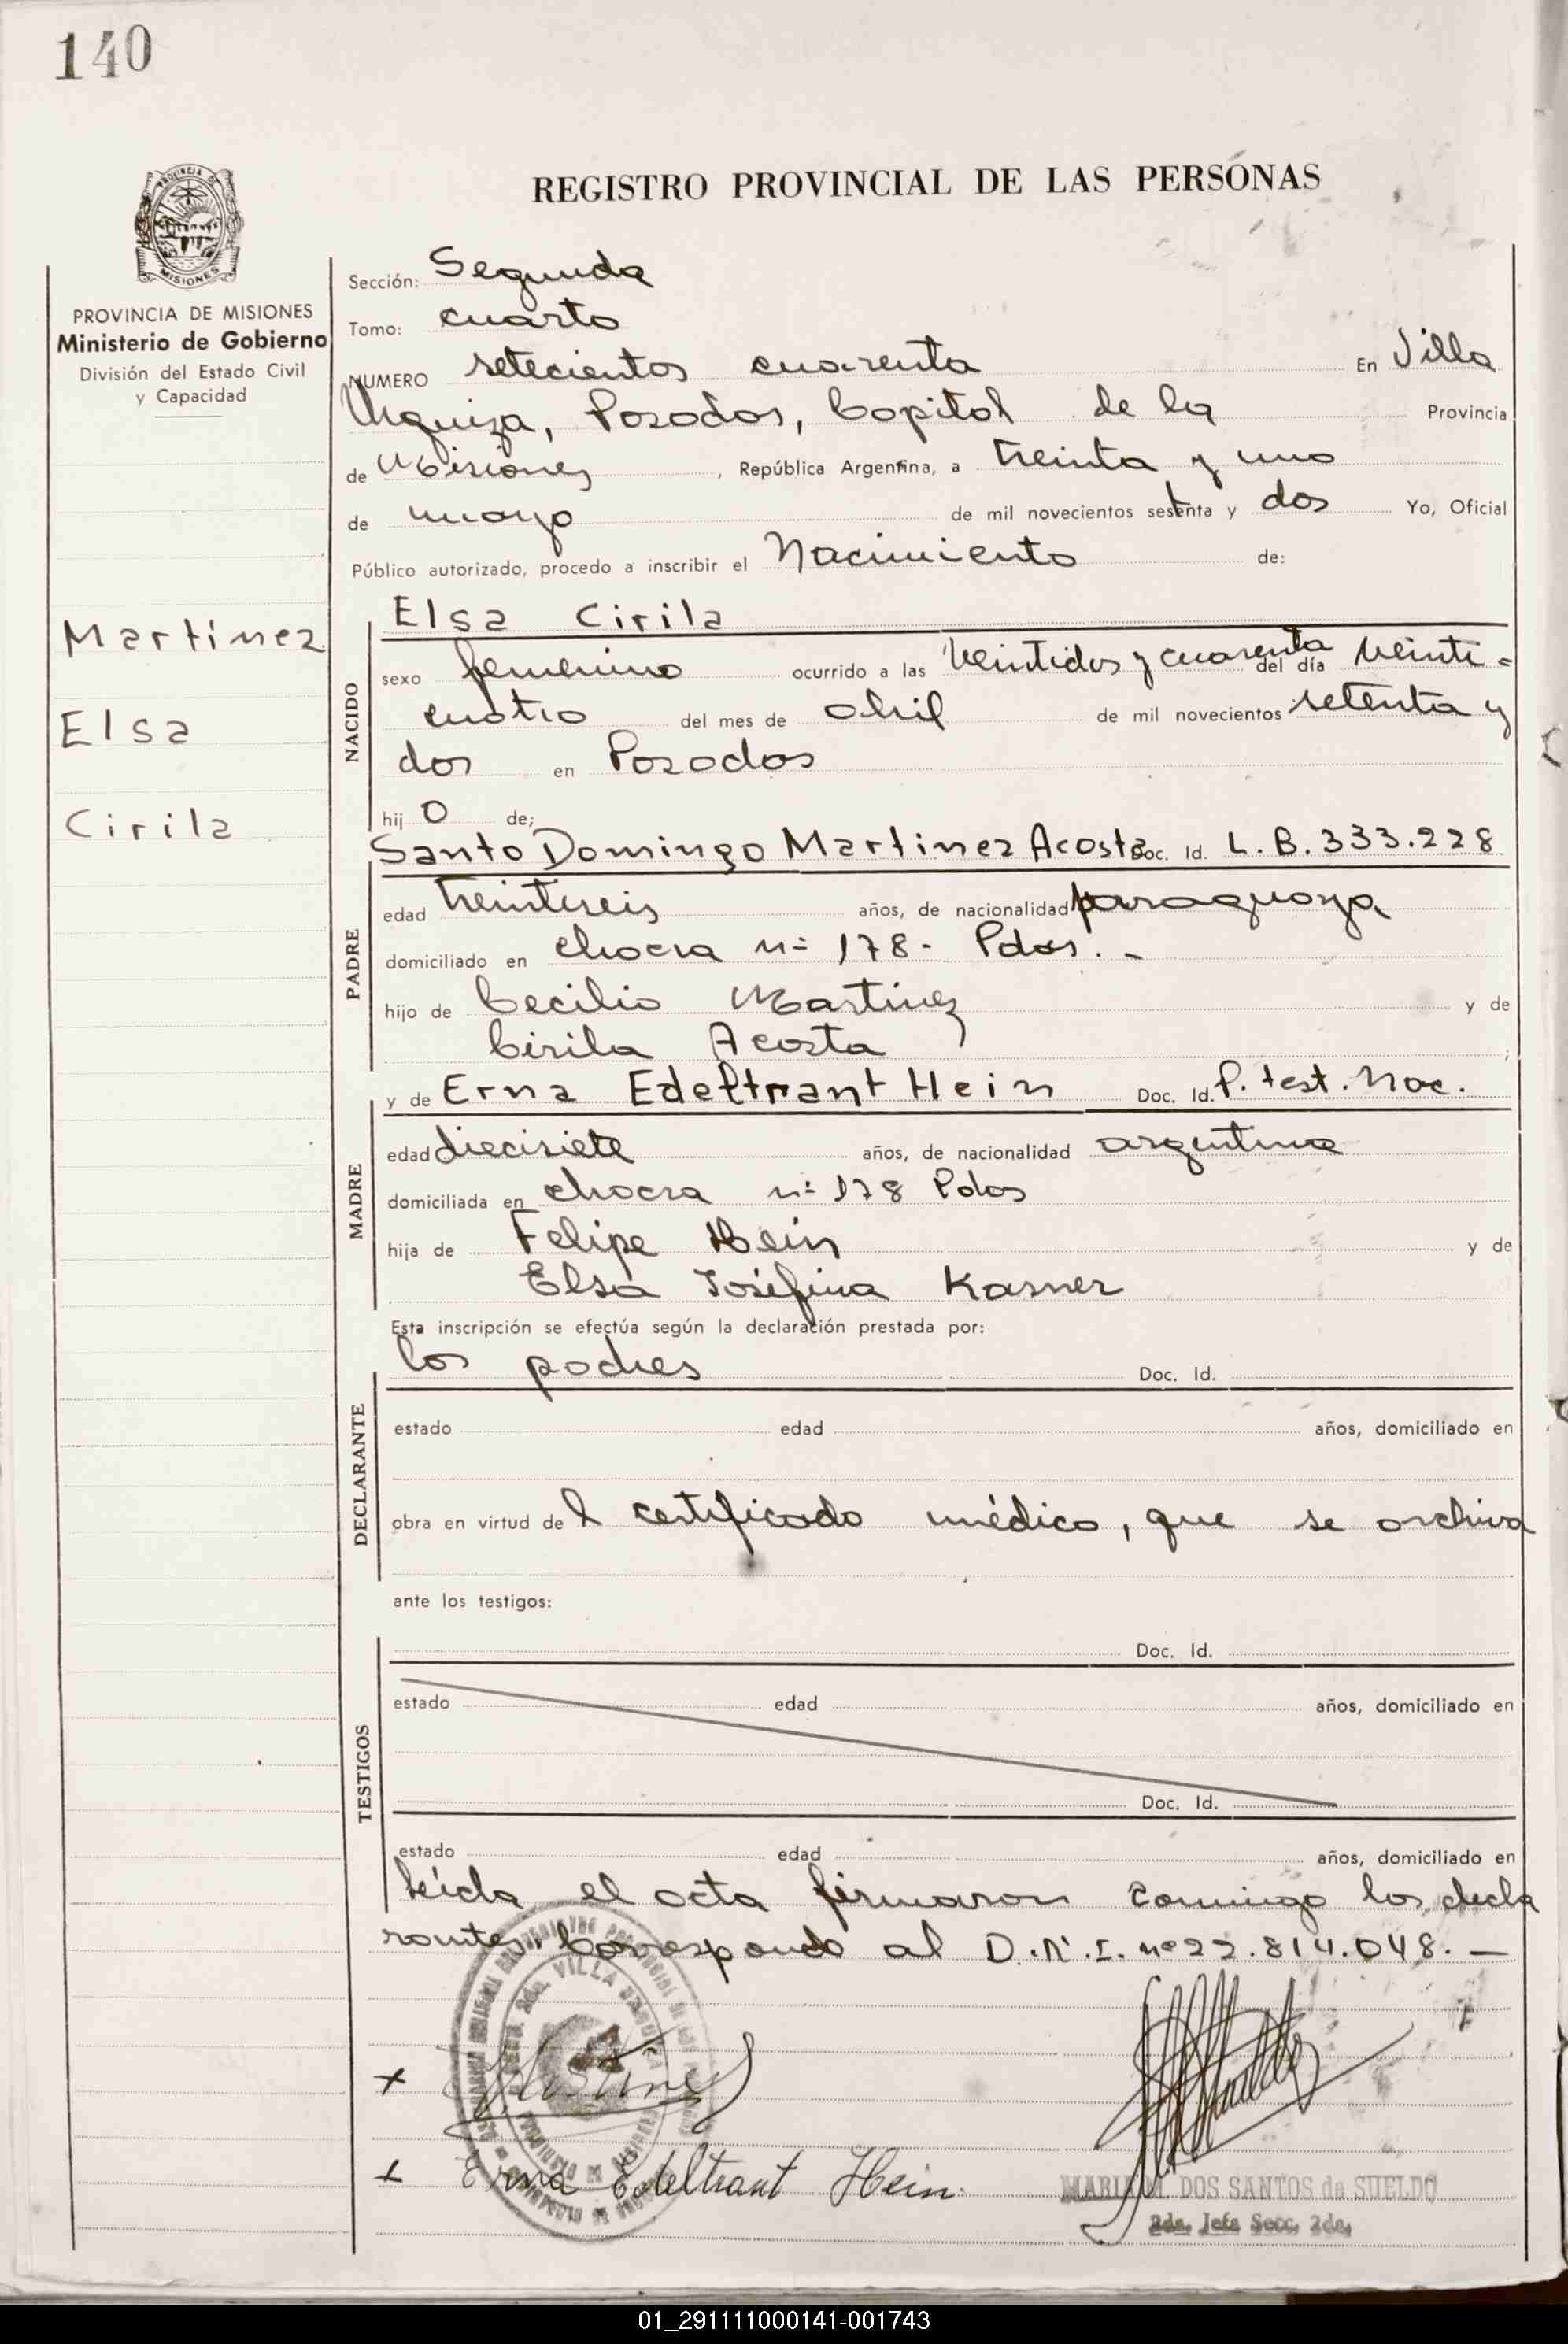 140
REGISTRO PROVINCIAL DE LAS PERSONAS
PROVINCIA DE MISIONES
Ministerio de Gobierno
División del Estado Civil
y Capacidad
Martínez
Elsa
Cirila
Sección: Segunda
Tomo: cuarto
NUMERO setecientos cuarenta En Villa
Urquiza, Posadas, Capital de la Provincia
de Misiones, República Argentina, a treinta y uno
de mayo de mil novecientos setenta y dos Yo, Oficial
Público autorizado, procedo a inscribir el Nacimiento de:
NACIDO
Elsa Cirila
sexo femenino ocurrido a las veintidos y cuarenta del día veinti-
cuatro del mes de abril de mil novecientos setenta y
dos en Posadas
hij o de;
PADRE
Santo Domingo Martinez Acosta Doc. Id. L.B. 333.228
edad treintiseis años, de nacionalidad paraguaya
domiciliado en chacra nº 178- Pdas.-
hijo de Cecilio Martinez y de
Cirila Acosta;
MADRE
y de Erna Edeltrant Hein Doc. Id. P. test. Nac.
edad diecisiete años, de nacionalidad argentina
domiciliada en chacra nº 178 Pdas
hija de Felipe Hein y de
Elsa Josefina Karner
Esta inscripción se efectúa según la declaración prestada por:
DECLARANTE
los padres Doc. Id.
estado edad años, domiciliado en
obra en virtud del certificado médico, que se archiva
ante los testigos:
TESTIGOS
Doc. Id.
estado edad años, domiciliado en
Doc. Id.
estado edad años, domiciliado en
Leída el acta firmaron conmigo los decla
rantes. Corresponde al D.N.I. nº 22.814.048.—
+ Martinez
+ Erna Edeltrant Hein
DOS SANTOS de SUELDO
2da. Jefe Secc. 2da.
01_291111000141-001743